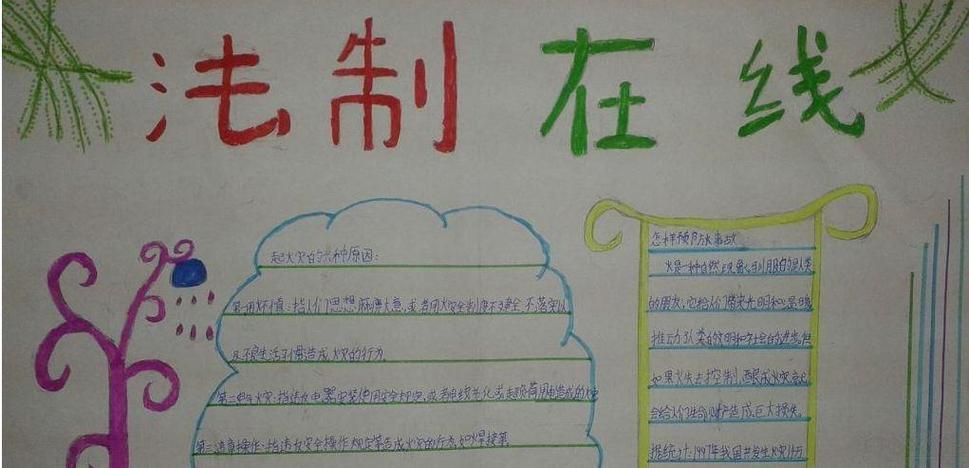 法制在线
起火灾的六种原因:
第一用火不慎:指人们思想麻痹大意,或者用火安全制度不健全,不落实以
及不良生活习惯造成火灾的行为
第二电气火灾:指违反电器安装使用安全规定,或者电线老化或超负荷用电造成的火灾
第三违章操作:指违反安全操作规定等造成火灾的行为,如焊接等
怎样预防火事故
火是一种自然现象,利用的是人类
的朋友,它给人们带来光明和温暖
推动人类的文明和社会的进步,但
如果火失去控制,酿成火灾,就
会给人们生命财产造成巨大损失
据统计,1997年我国共发生火灾14万